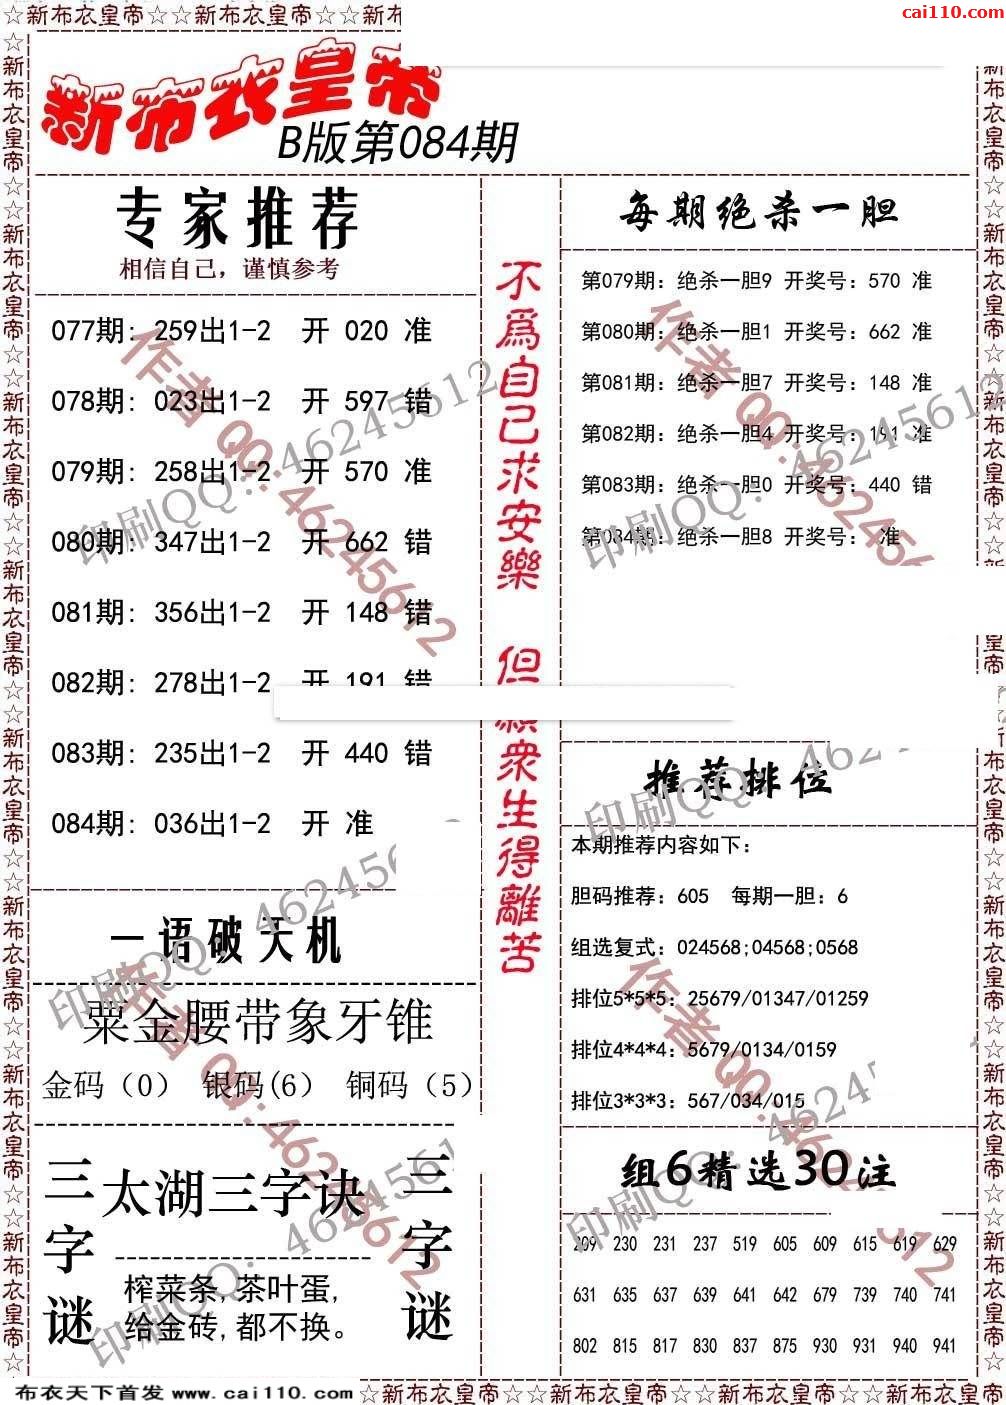 ☆新布衣皇帝☆☆新布衣皇帝☆☆新布
cai110.com
新布衣皇帝
B版第084期
专家推荐
相信自己，谨慎参考
077期: 259出1-2 开 020 准
078期: 023出1-2 开 597 错
079期: 258出1-2 开 570 准
080期: 347出1-2 开 662 错
081期: 356出1-2 开 148 错
082期: 278出1-2 开 191 错
083期: 235出1-2 开 440 错
084期: 036出1-2 开 准
一语破天机
粟金腰带象牙锥
金码（0） 银码(6） 铜码（5）
三字谜
太湖三字诀
榨菜条,茶叶蛋,
给金砖,都不换。
三字谜
不為自己求安樂
但願衆生得離苦
每期绝杀一胆
第079期: 绝杀一胆9 开奖号: 570 准
第080期: 绝杀一胆1 开奖号: 662 准
第081期: 绝杀一胆7 开奖号: 148 准
第082期: 绝杀一胆4 开奖号: 191 准
第083期: 绝杀一胆0 开奖号: 440 错
第084期: 绝杀一胆8 开奖号: 准
推荐排位
本期推荐内容如下:
胆码推荐: 605 每期一胆: 6
组选复式: 024568;04568;0568
排位5*5*5: 25679/01347/01259
排位4*4*4: 5679/0134/0159
排位3*3*3: 567/034/015
组6精选30注
209 230 231 237 519 605 609 615 619 629
631 635 637 639 641 642 679 739 740 741
802 815 817 830 837 875 930 931 940 941
作者QQ:46245612
印刷QQ: 46245612
布衣天下首发 www.cai110.com
☆新布衣皇帝☆☆新布衣皇帝☆☆新布衣皇帝☆☆新布衣皇帝☆